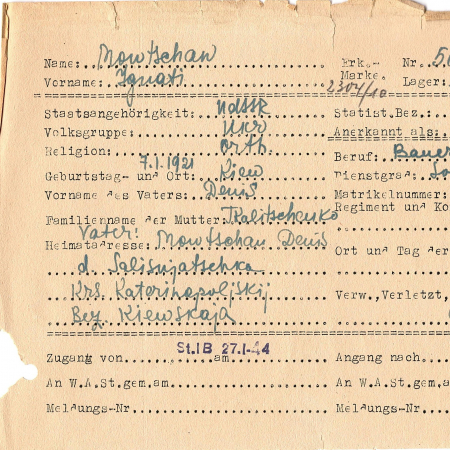 Name: Mowtschan Erk.- Nr. 50
Vorname: Ignati Marke. 2304/10 Lager:
Staatsangehörigkeit: UdSSR Statist.Bez.:
Volksgruppe: Ukr Anerkannt als:
Religion: Orth. Beruf: Bauer
Geburtstag- und Ort: 7.1.1921 Kiew Dienstgrad:
Vorname des Vaters: Denis Matrikelnummer:
Familienname der Mutter: Kalitschenko Regiment und Ko
Heimatadresse: Vater! Mowtschan Denis Ort und Tag der
d. Salisnjatschka
Krs Katerinopoljskij Verw.,Verletzt,
Bez. Kiewskaja
St.IB 27.1.44
Zugang von am Angang nach
An W.A.St.gem.am An W.A.St.gem.a
Meldungs-Nr Meldungs-Nr